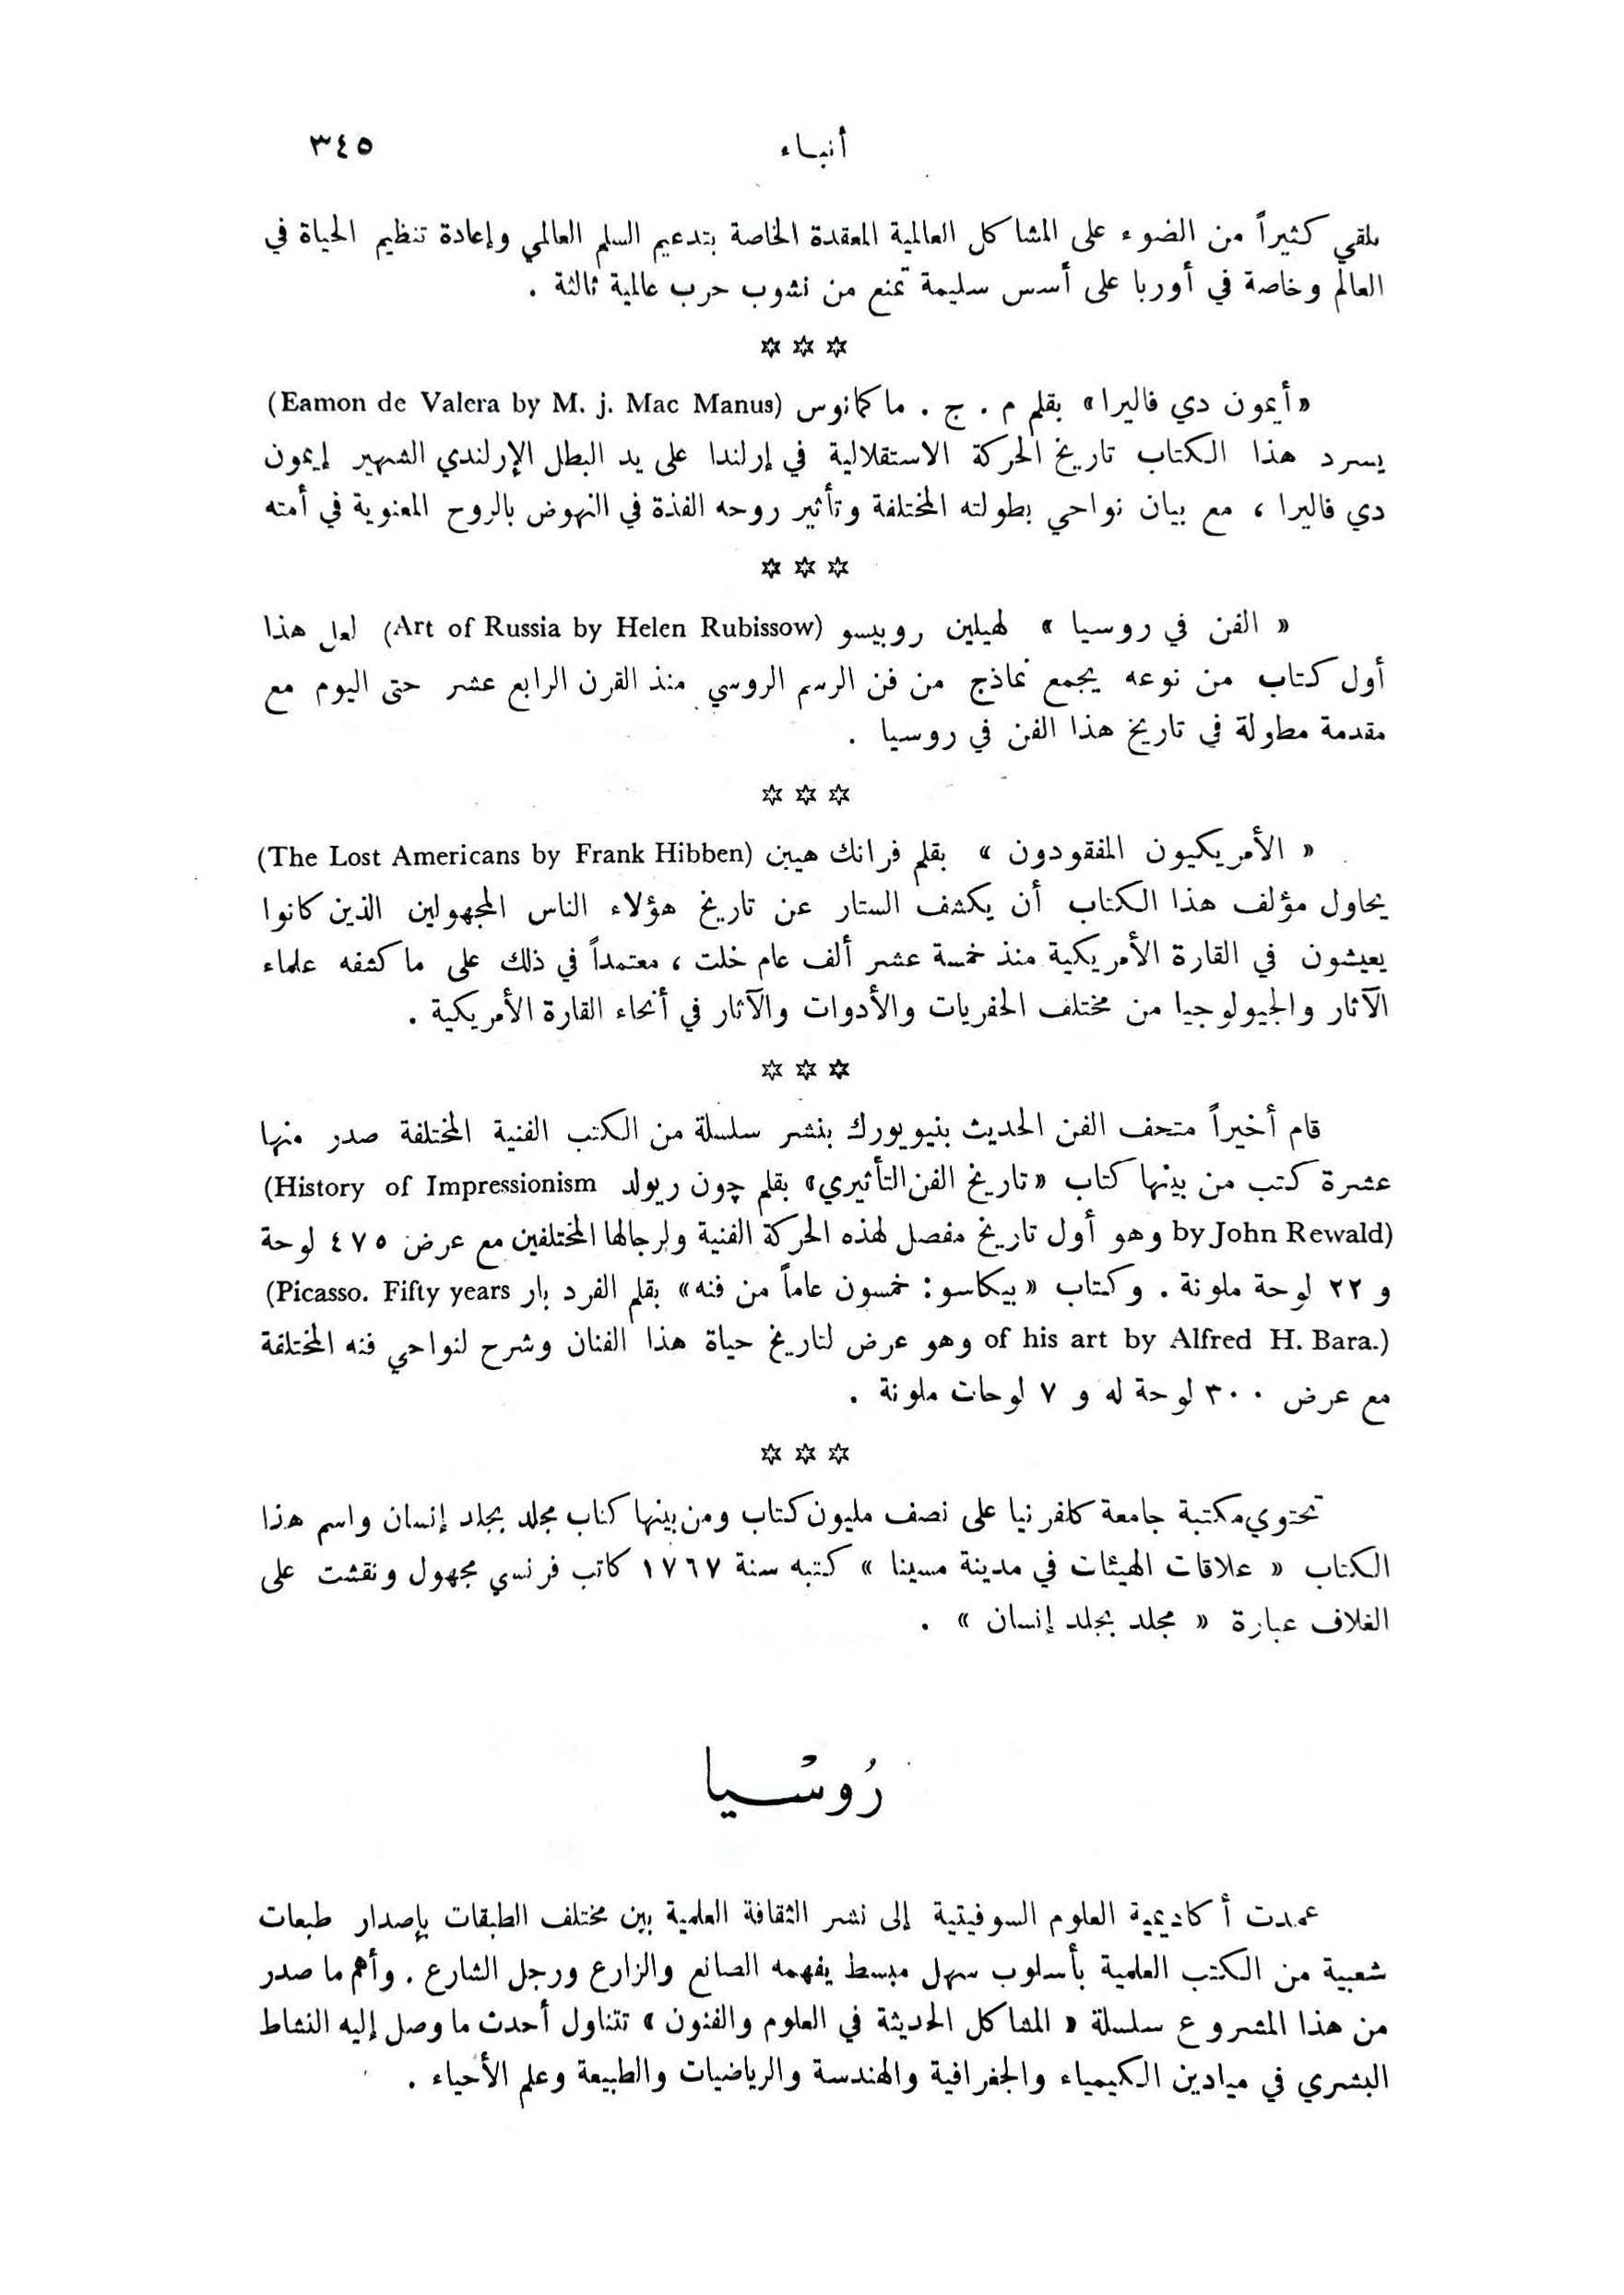 أنباء ٣٤٥
يلقي كثيراً من الضوء على المشاكل العالمية المعقدة الخاصة بتدعيم السلم العالمي وإعادة تنظيم الحياة في
العالم وخاصة في أوربا على أسس سليمة تمنع من نشوب حرب عالمية ثالثة .
✡ ✡ ✡
«أيمون دي فاليرا» بقلم م . ج . ماكمانوس (Eamon de Valera by M. j. Mac Manus)
يسرد هذا الكتاب تاريخ الحركة الاستقلالية في إرلندا على يد البطل الإرلندي الشهير إيمون
دي فاليرا ، مع بيان نواحي بطولته المختلفة وتأثير روحه الفذة في النهوض بالروح المعنوية في أمته
✡ ✡ ✡
« الفن في روسيا » لهيلين روبيسو (Art of Russia by Helen Rubissow) لعل هذا
أول كتاب من نوعه يجمع نماذج من فن الرسم الروسي منذ القرن الرابع عشر حتى اليوم مع
مقدمة مطولة في تاريخ هذا الفن في روسيا .
✡ ✡ ✡
« الأمريكيون المفقودون » بقلم فرانك هيبن (The Lost Americans by Frank Hibben)
يحاول مؤلف هذا الكتاب أن يكشف الستار عن تاريخ هؤلاء الناس المجهولين الذين كانوا
يعيشون في القارة الأمريكية منذ خمسة عشر ألف عام خلت ، معتمداً في ذلك على ما كشفه علماء
الآثار والجيولوجيا من مختلف الحفريات والأدوات والآثار في أنحاء القارة الأمريكية .
✡ ✡ ✡
قام أخيراً متحف الفن الحديث بنيويورك بنشر سلسلة من الكتب الفنية المختلفة صدر منها
عشرة كتب من بينها كتاب «تاريخ الفن التأثيري» بقلم چون ريولد (History of Impressionism
by John Rewald) وهو أول تاريخ مفصل لهذه الحركة الفنية ولرجالها المختلفين مع عرض ٤٧٥ لوحة
و ٢٢ لوحة ملونة . وكتاب «بيكاسو: خمسون عاماً من فنه» بقلم الفرد بار (Picasso. Fifty years
of his art by Alfred H. Bara.) وهو عرض لتاريخ حياة هذا الفنان وشرح لنواحي فنه المختلفة
مع عرض ٣٠٠ لوحة له و ٧ لوحات ملونة .
✡ ✡ ✡
تحتوي مكتبة جامعة كلفرنيا على نصف مليون كتاب ومن بينها كتاب مجلد بجلد إنسان واسم هذا
الكتاب « علاقات الهيئات في مدينة مسينا » كتبه سنة ١٧٦٧ كاتب فرنسي مجهول ونقشت على
الغلاف عبارة « مجلد بجلد إنسان » .
رُوسْيا
عمدت أكاديمية العلوم السوفيتية إلى نشر الثقافة العلمية بين مختلف الطبقات بإصدار طبعات
شعبية من الكتب العلمية بأسلوب سهل مبسط يفهمه الصانع والزارع ورجل الشارع . وأهم ما صدر
من هذا المشروع سلسلة « المشاكل الحديثة في العلوم والفنون » تتناول أحدث ما وصل إليه النشاط
البشري في ميادين الكيمياء والجغرافية والهندسة والرياضيات والطبيعة وعلم الأحياء .